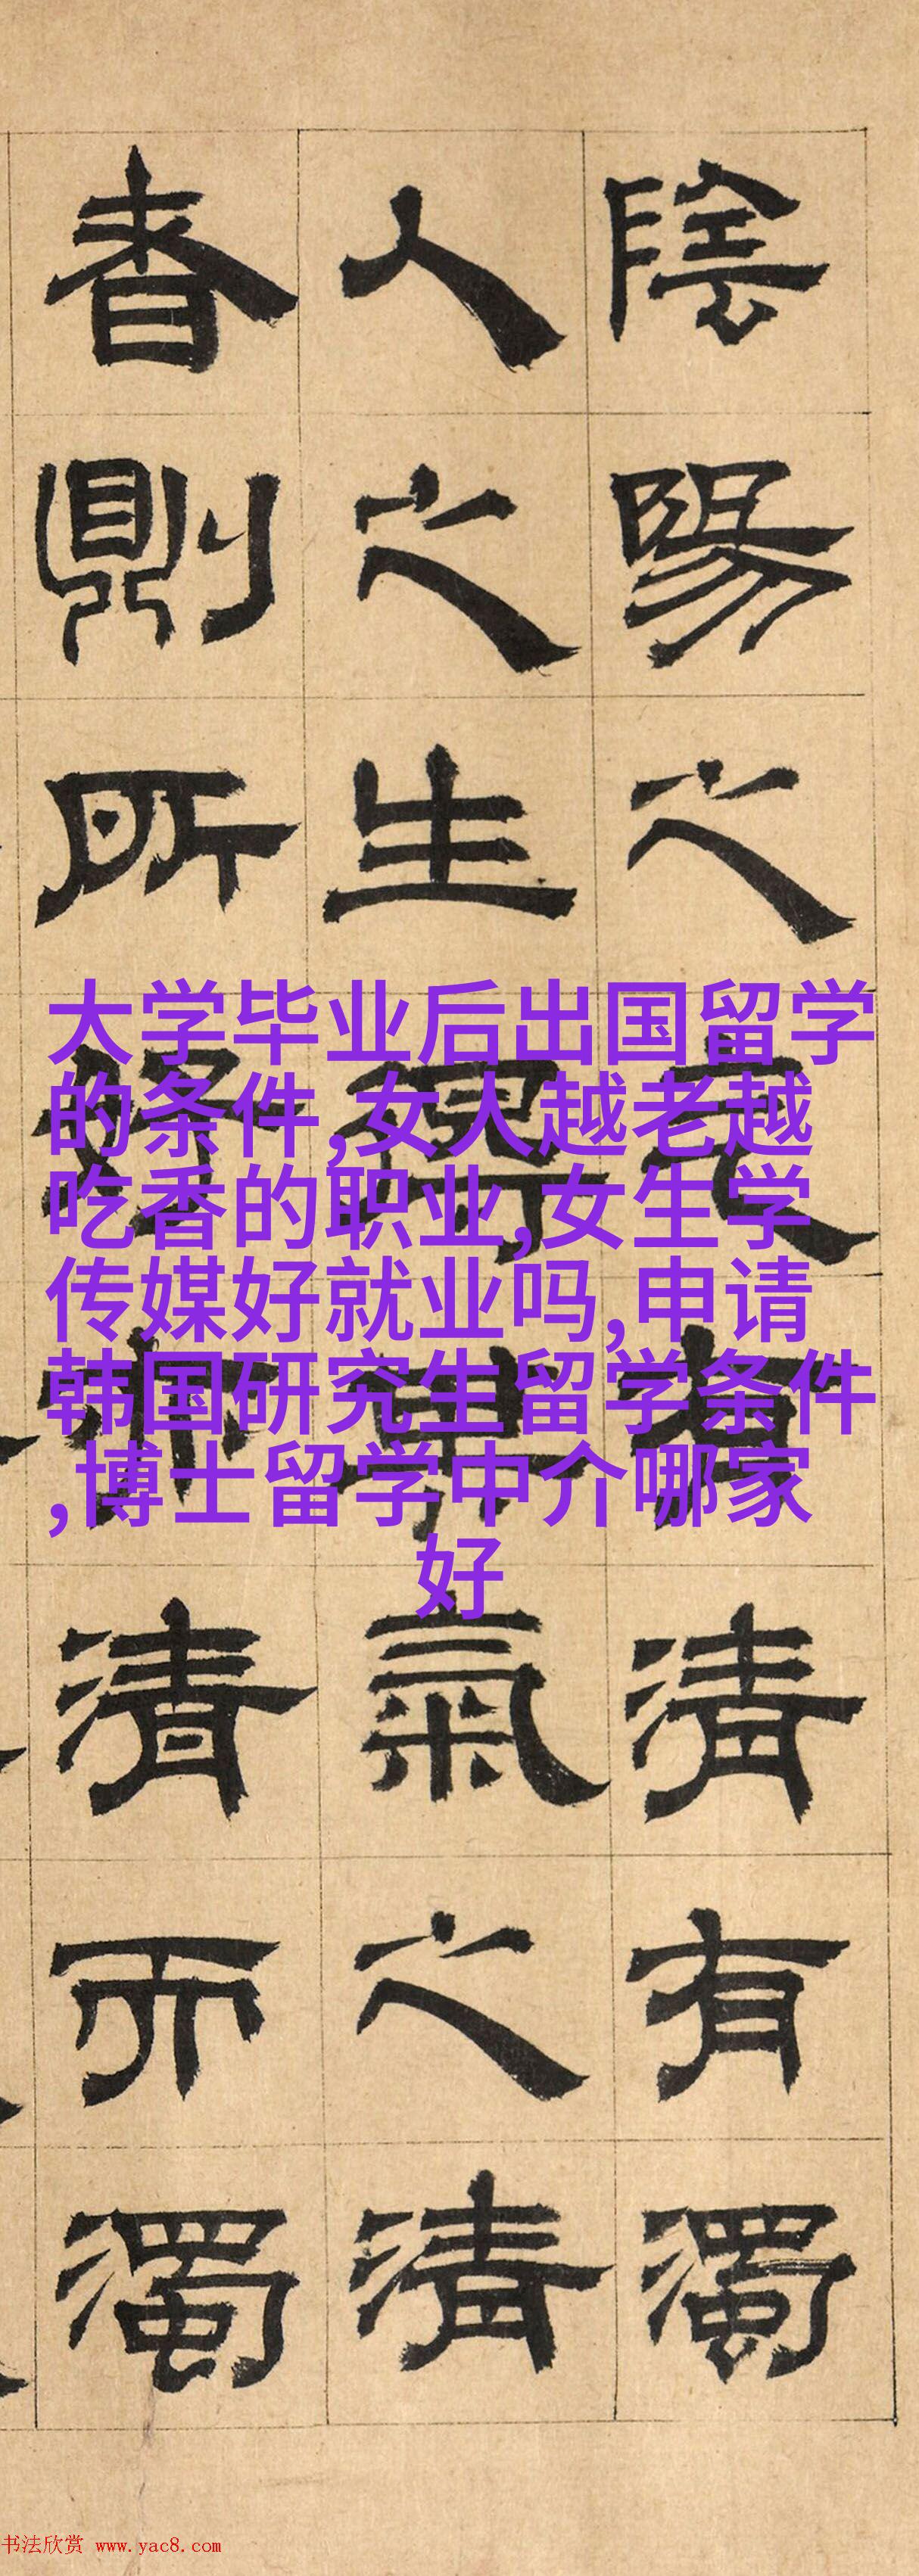 陰陽之有清有濁
人之生得氣之清
者則所清而濁
大学毕业后出国留学
的条件,女人越老越
吃香的职业,女生学
传媒好就业吗,申请
韩国研究生留学条件
,博士留学中介哪家
好
书法欣赏 www.yac8.com